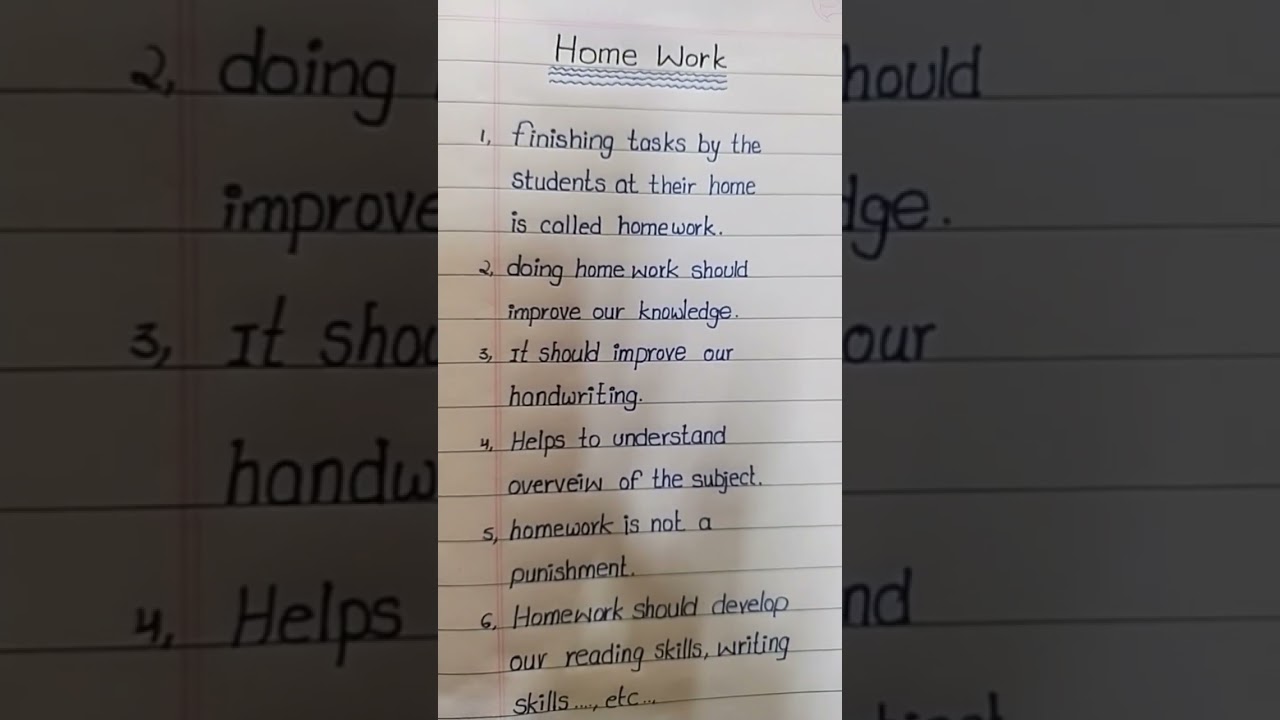 Home Work
1, finishing tasks by the
students at their home
is called homework.
2, doing home work should
improve our knowledge.
3, It should improve our
handwriting.
4, Helps to understand
overveiw of the subject.
5, homework is not a
punishment.
6, Homework should develop
our reading skills, writing
skills...., etc...